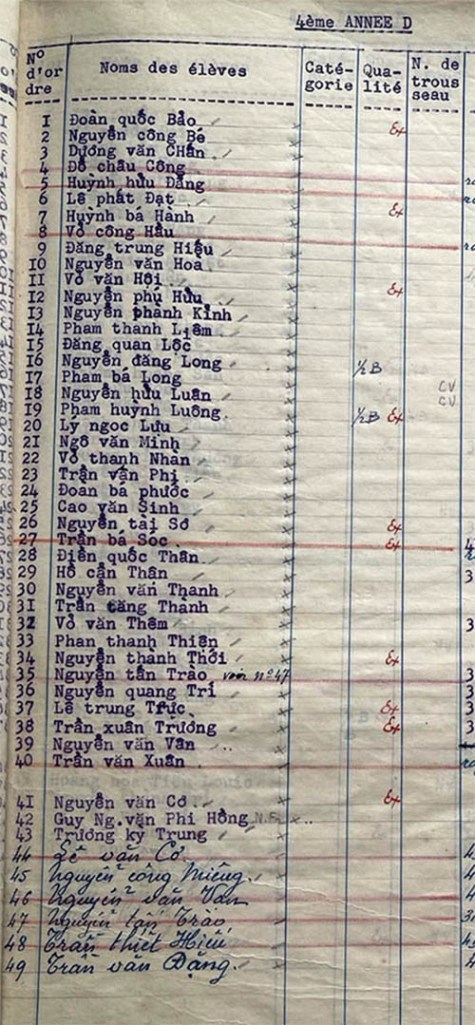 4ème ANNEE D
N° d'or dre Noms des élèves Caté- gorie Qua- lité N. de trous seau
1 Đoàn quốc Bảo
2 Nguyễn công Bé Ex
3 Dương văn CHấn
4 Đỗ châu Công
5 Huỳnh hữu Đằng
6 Lê phát Đạt
7 Huỳnh bá Hành Ex
8 Võ công Hầu
9 Đặng trung Hiếu
10 Nguyễn văn Hoa
11 Võ văn Hội
12 Nguyễn phú Hữu Ex
13 Nguyễn phành Kính
14 Pham thanh Liêm
15 Đặng quan Lộc
16 Nguyễn đăng Long
17 Pham bá Long ½ B
18 Nguyễn hữu Luân CV
19 Phạm huỳnh Luông ½ B Ex CV
20 Lý ngọc Lưu
21 Ngô văn Minh
22 Võ thanh Nhàn
23 Trần văn Phi
24 Đoan bá phước
25 Cao văn Sinh
26 Nguyễn tài Sơ Ex
27 Trần bá Sóc Ex
28 Điền quốc Thân
29 Hồ cẩn Thân 3
30 Nguyễn văn Thanh
31 Trần tăng Thành
32 Võ văn Thêm 3
33 Phan thanh Thiên
34 Nguyễn thành Thới Ex
35 Nguyễn tấn Trào voir n° 47 3
36 Nguyễn quang Trí 3
37 Lê trung Trực Ex 3
38 Trần xuân Trường Ex 3
39 Nguyễn văn Vân
40 Trần văn Xuân
41 Nguyễn văn Cơ Ex
42 Guy Ng.văn Phi Hồng
43 Trương ký Trung
44 Lê văn Cơ
45 Nguyễn công Miêng
46 Nguyễn văn Van
47 Nguyễn tấn Trào
48 Trần thiết Hiếu
49 Trần văn Đặng